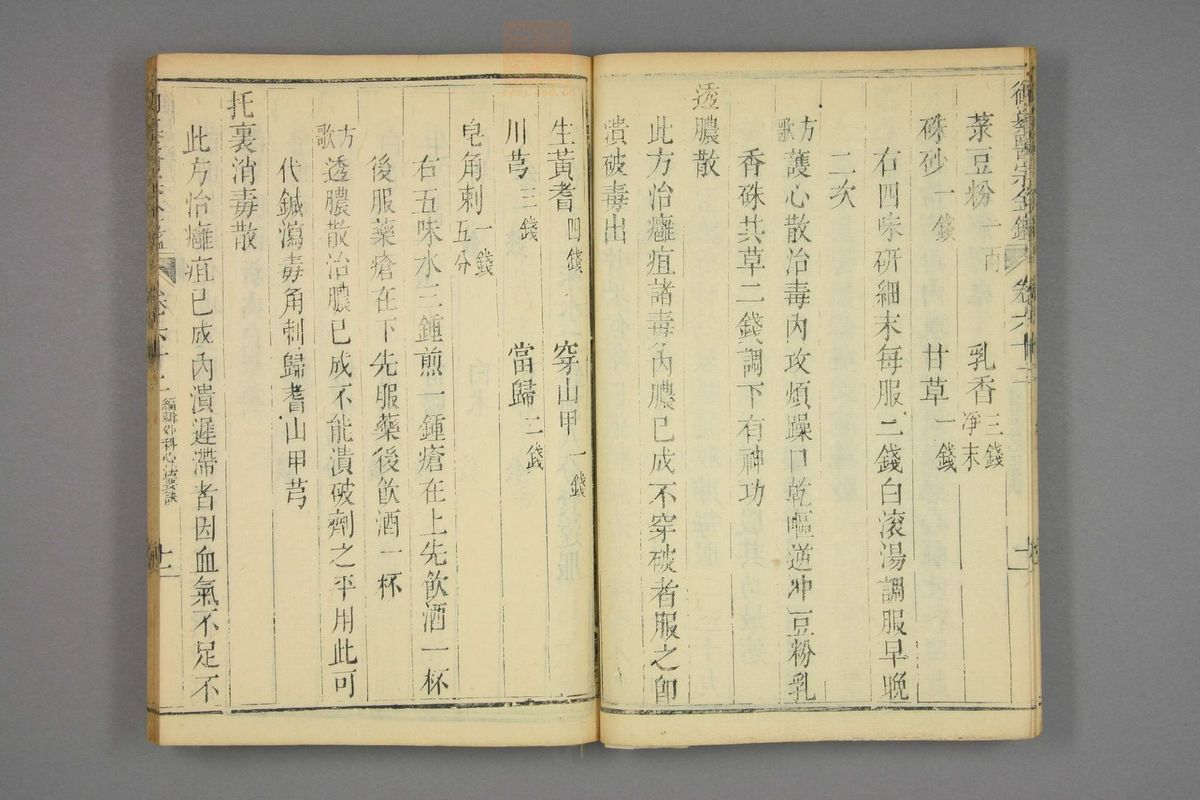 御纂醫宗金鑑 卷六十二
菉豆粉一兩 乳香三錢淨末
硃砂一錢 甘草一錢
右四味研細末每服二錢白滾湯調服早晚
二次
方歌 護心散治毒內攻煩躁口乾嘔逆冲豆粉乳
香硃共草二錢調下有神功
透膿散
此方治癰疽諸毒內膿已成不穿破者服之即
潰破毒出
生黃耆四錢 穿山甲一錢
川芎三錢 當歸二錢
皂角刺一錢五分
右五味水三鍾煎一鍾瘡在上先飲酒一杯
後服藥瘡在下先服藥後飲酒一杯
方歌 透膿散治膿已成不能潰破劑之平用此可
代鍼瀉毒角刺歸耆山甲芎
托裏消毒散
此方治癰疽已成內潰遲滯者因血氣不足不
卷六十二 編輯外科心法要訣 十一